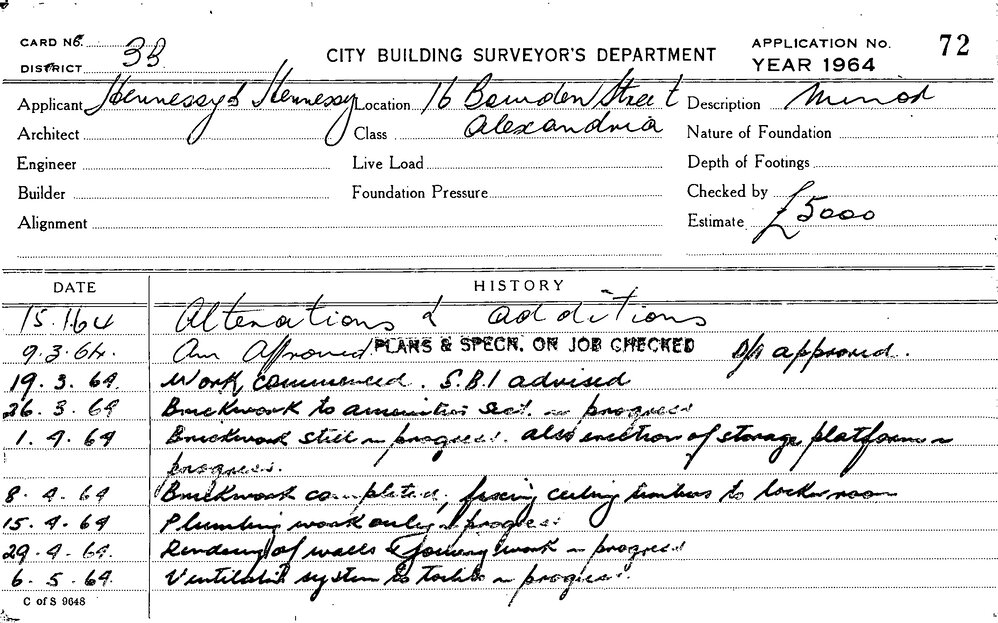 CARD No. 
DISTRICT 3B
CITY BUILDING SURVEYOR'S DEPARTMENT
APPLICATION No. 72
YEAR 1964
Applicant Hennessy & Hennessy Location 16 Bowden Street Description Minor
Architect Class Alexandria Nature of Foundation
Engineer Live Load Depth of Footings
Builder Foundation Pressure Checked by
Alignment Estimate £5000
DATE HISTORY
15.1.64 Alterations & additions
9.3.64. Approved PLANS & SPECN. ON JOB CHECKED approved.
19.3.64. Work commenced. S.B.I advised
26.3.64 Brickwork to amenities sect. in progress
1.4.64 Brickwork still in progress. also erection of storage platform in
progress.
8.4.64 Brickwork completed, fixing ceiling timbers to locker room
15.4.64 Plumbing work only in progress
29.4.64. Rendering of walls & joinery work in progress
6.5.64. system to in progress.
C of S 9648